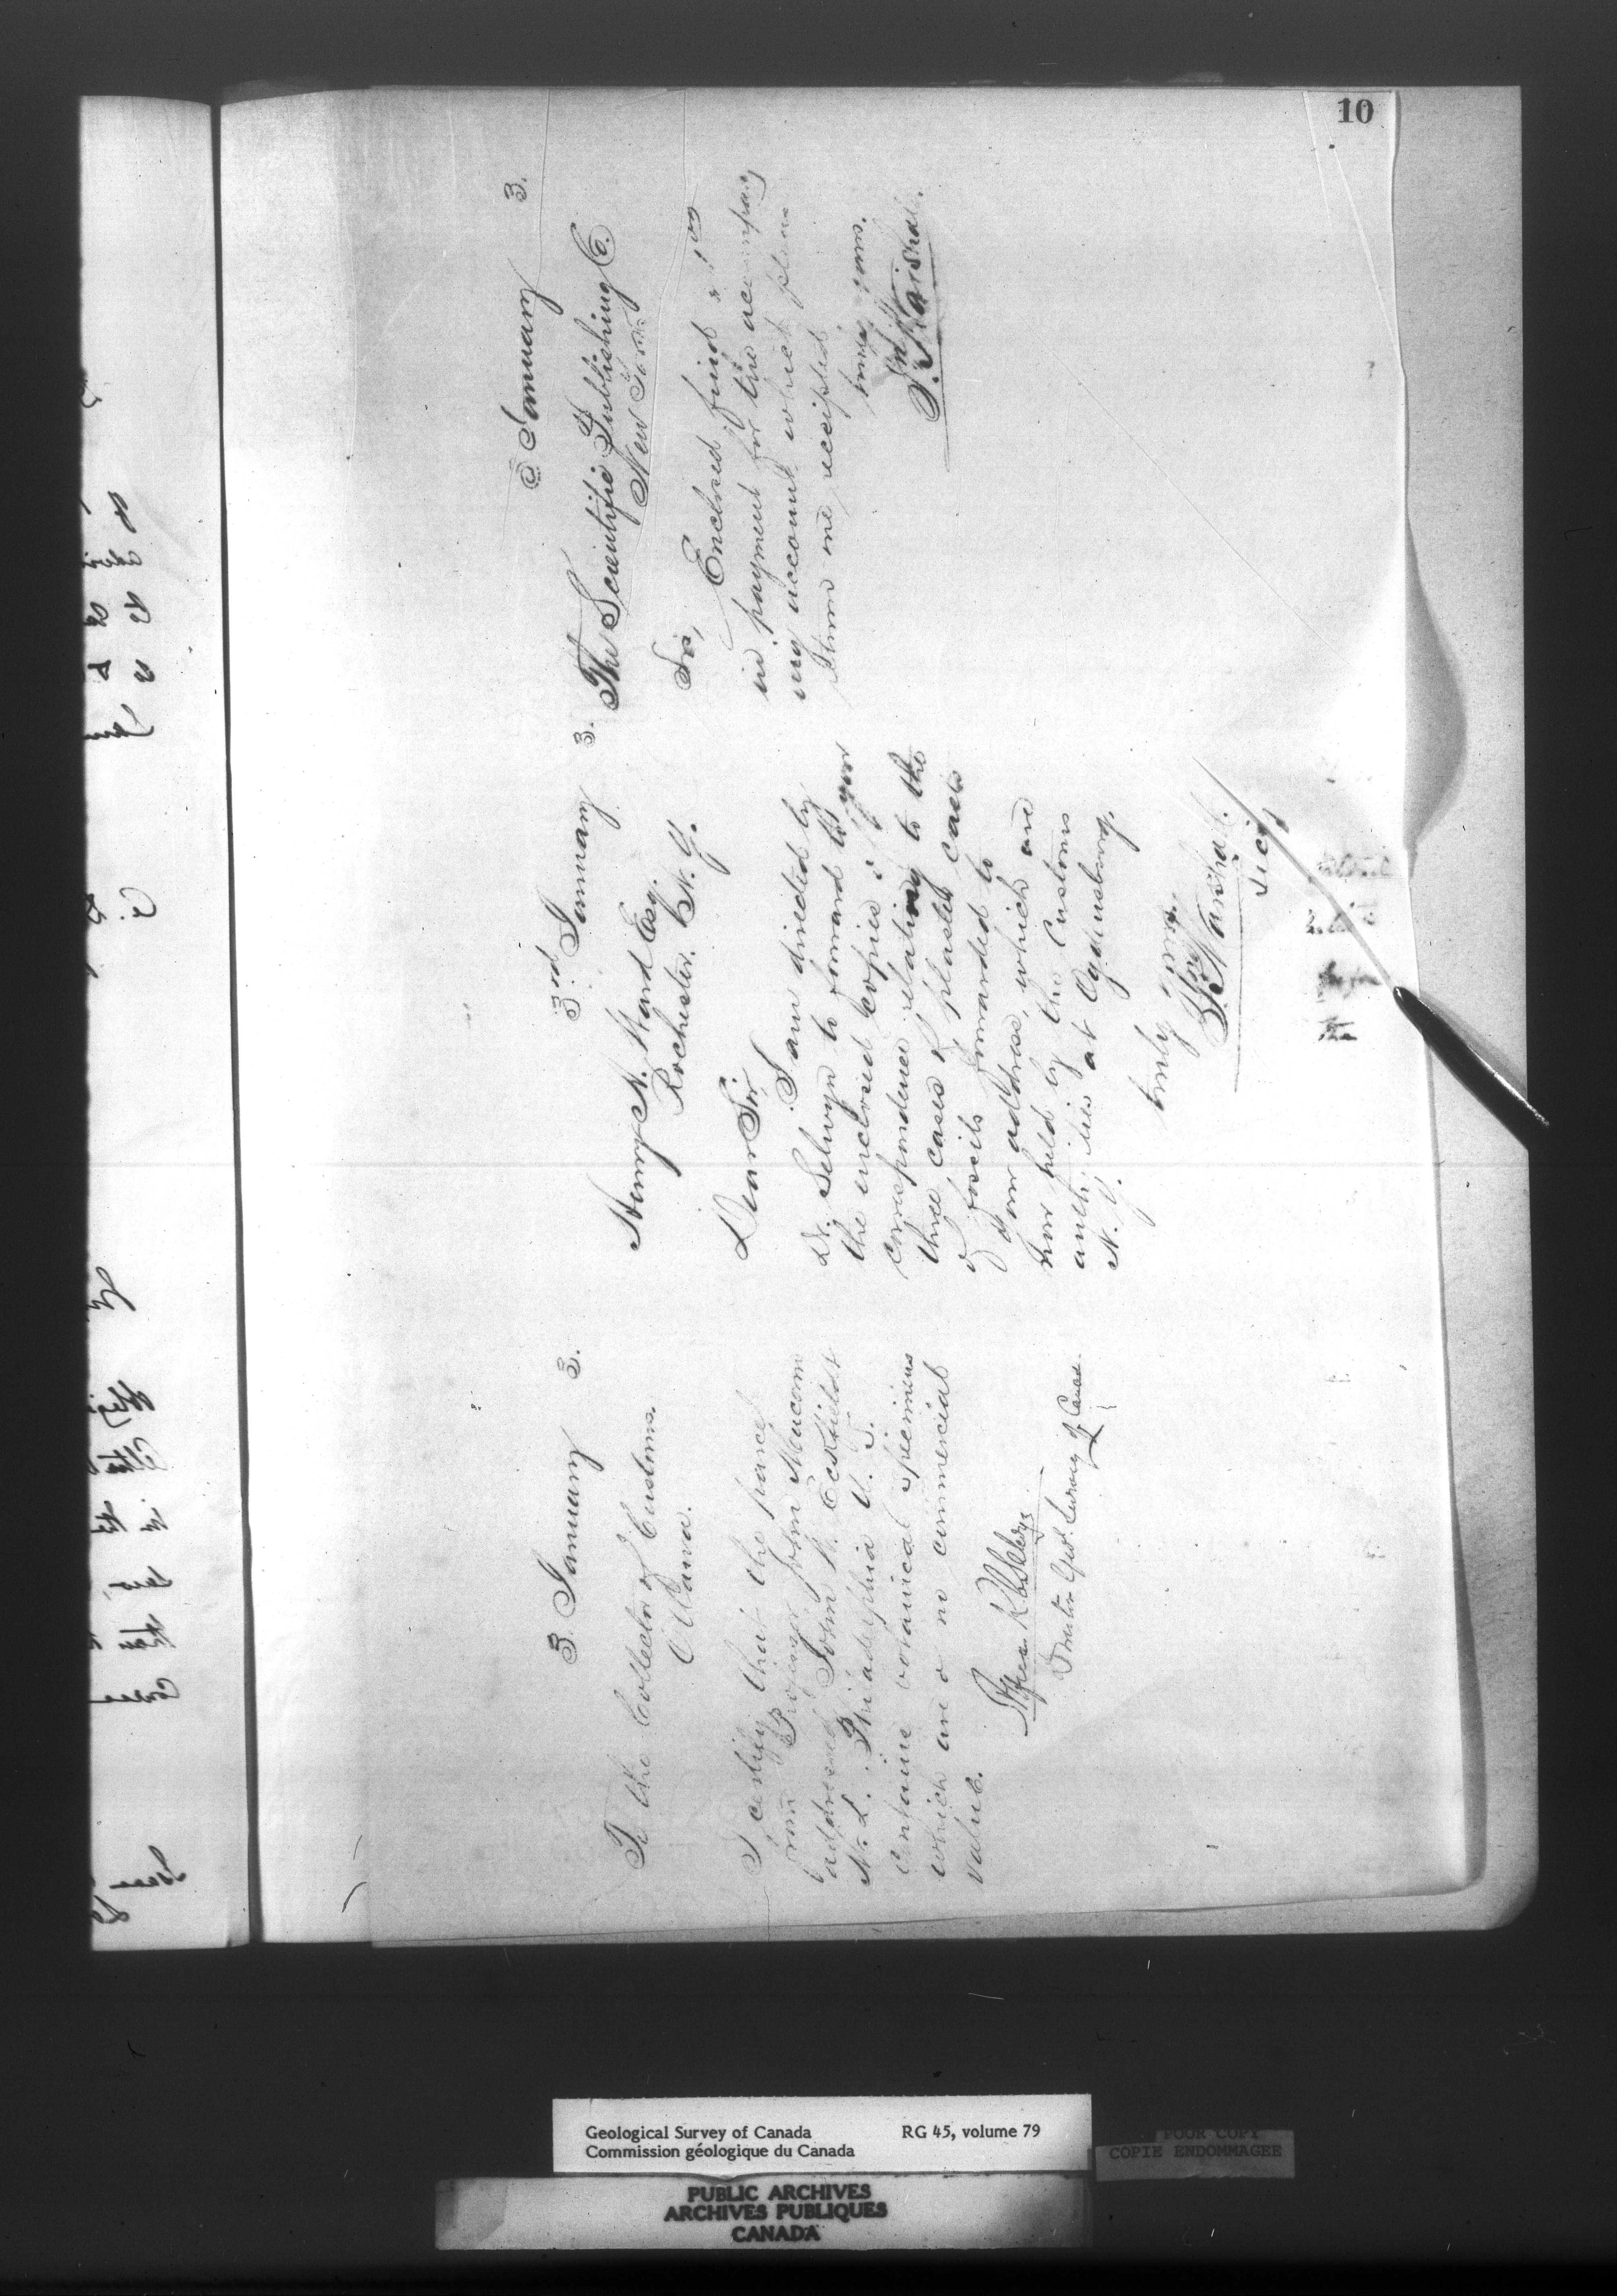 10
3. January 3.
To the Collector of Customs.
Ottawa.
I certify that the parcel
from Professor John Macoun
addressed John H. Eckfeldt
M.D. Philadelphia U.S.
Contains botanical specimens
which are of no commercial
value.
Geol. Survey of Canada
3rd January 3.
Henry A. Ward Esq.
Rochester. N.Y.
Dear Sir
I am directed by
Dr. Selwyn to forward to you
the inclosed copies of
correspondence relating to the
three cases of plaster casts
of fossils forwarded to
your address, which are
now held by the Customs
authorities at Ogdensburg,
N.Y.
truly yours.
J. Marshall.
January 3.
The Scientific Publishing Co.
New York
Sir,
Enclosed find $1.00
in payment for the accompany
ing account which please
return me receipted
truly yours.
J. Marshall.
Geological Survey of Canada RG 45, volume 79
Commission géologique du Canada
POOR COPY
COPIE ENDOMMAGEE
PUBLIC ARCHIVES
ARCHIVES PUBLIQUES
CANADA